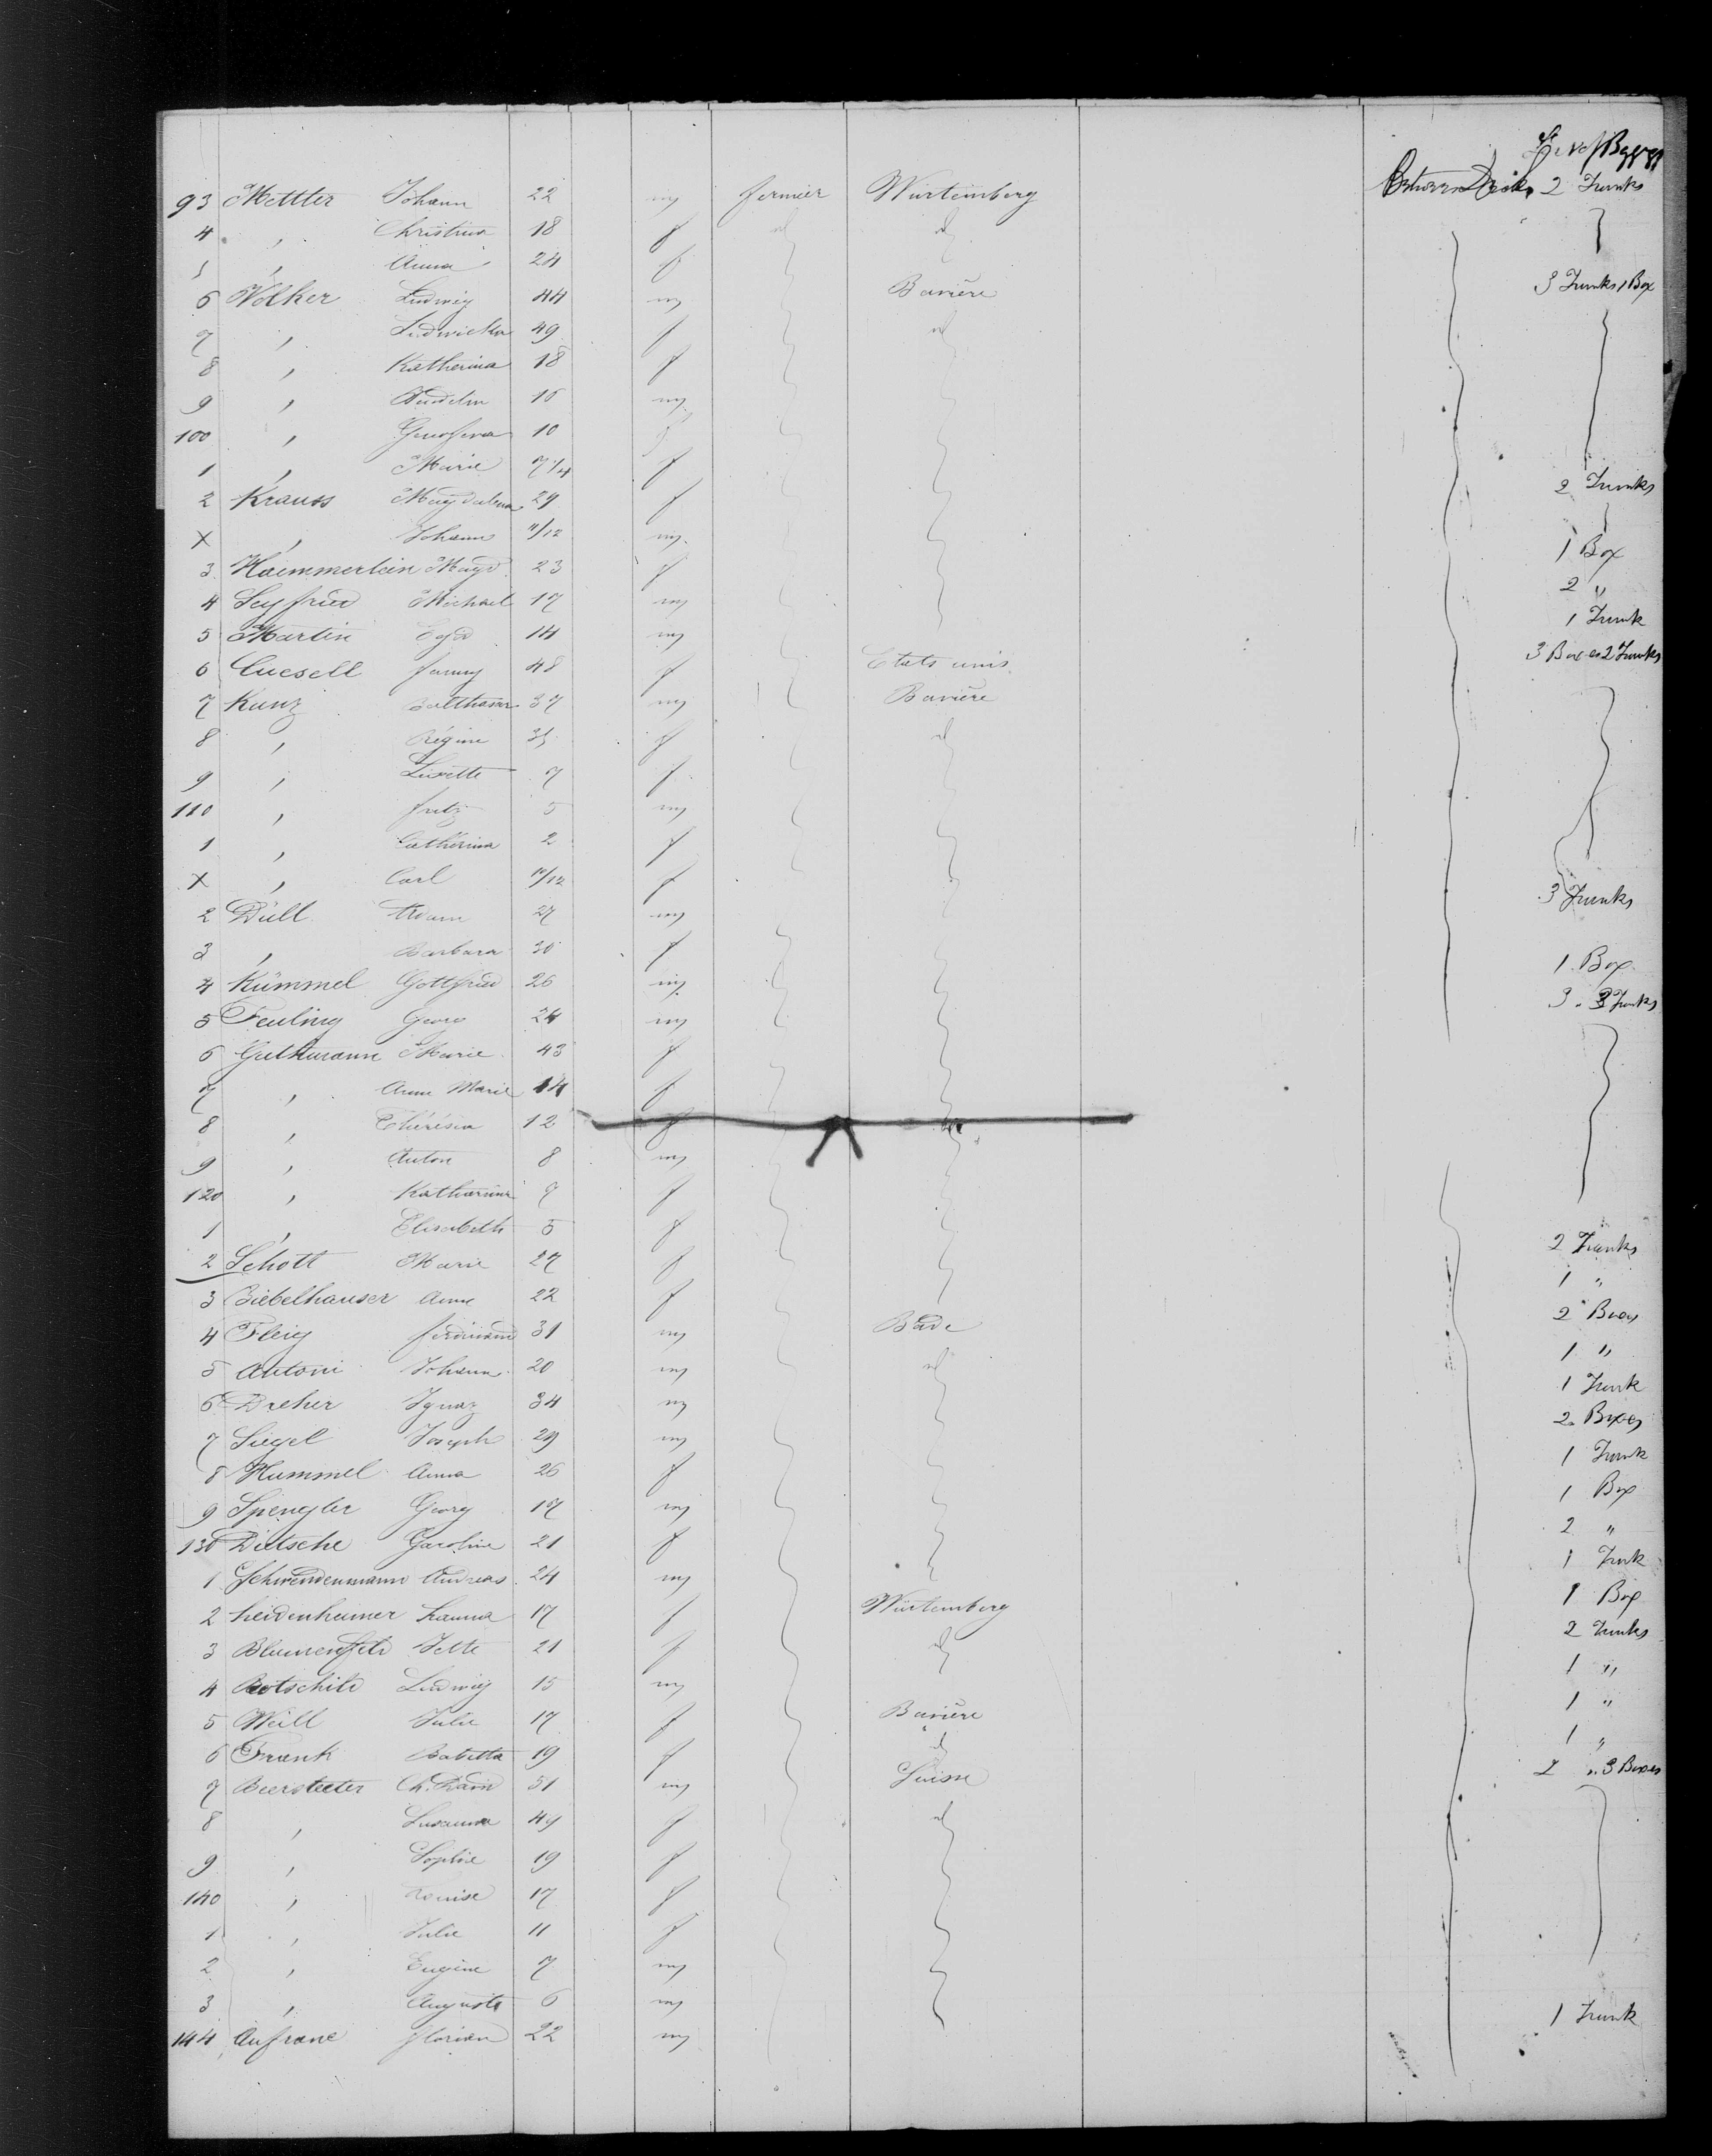 No of Bggge
93 Mettler Johann 22 m fermier Würtemberg Between Decks 2 Trunks
4 , Christina 18 f id id
5 , Anna 24 f
6 Volker Ludwig 44 m Bavière 3 Trunks 1 Box
7 , Ludwicka 49 f id
8 , Katherina 18 f
9 , Wendelin 16 m
100 , Genofeva 10 f
1 , Marie 7 1/4 f
2 Krauss Magdalena 29 f 2 Trunks
X , Johann 11/12 m
3 Haemmerlein Magd 23 f 1 Box
4 Seyfried Michael 17 m 2 "
5 Martin Egd 14 m 1 Trunk
6 Cuesell fanny 48 f Etats unis 3 Boxes 2 Trunks
7 Kunz Balthasar 37 m Bavière
8 , Régine 35 f id
9 , Lisette 7 f
110 , fritz 5 m
1 , Catherina 2 f
X , Carl 10/12 f
2 Düll Adam 27 m 3 Trunks
3 , Barbara 30 f
4 Kümmel Gottfried 26 m 1 Box
5 Feuling Georg 24 m 3 " 3 Trunks
6 Guthmann Marie 43 f
7 , Anna Marie 14 f
8 , Thérésia 12 f
9 , Anton 8 m
120 , Katharina 9 f
1 , Elisabeth 5 f
2 Schott Marie 27 f 2 Trunks
3 Biebelhauser Anna 22 f 1 "
4 Fleig ferdinand 31 m Bade 2 Boxes
5 Antoni Johann 20 m id 1 "
6 Dreher Ignaz 34 m 1 Trunk
7 Siegel Joseph 29 m 2 Boxes
8 Hummel Anna 26 f 1 Trunk
9 Spengler Georg 17 m 1 Box
130 Dietsche Caroline 21 f 2 "
1 Schwendenmann Andreas 24 m 1 Trunk
2 Heidenheimer Hanna 17 f Würtemberg 1 Box
3 Blumenfeld Jette 21 f id 2 Trunks
4 Rotschild Ludwig 15 m 1 "
5 Weill Julie 17 f Bavière 1 "
6 Frank Babetta 19 f id 1 "
7 Beersteeter Ch. David 51 m Suisse 2 " 3 Boxes
8 , Susanna 49 f id
9 , Sophie 19 f
140 , Louise 17 f
1 , Julie 11 f
2 , Eugène 7 m
3 , Auguste 6 m
144 Aufranc florian 22 m 1 Trunk